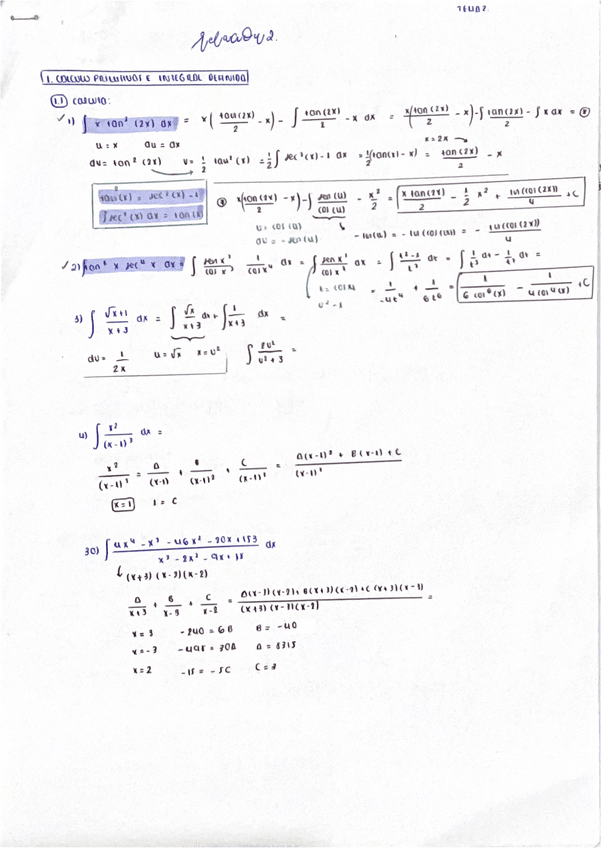 TEMA 2
1. CALCULO PRIMITIVAS E INTEGRAL DEFINIDA
1.1 CALCULA:
1) ∫ x tan² (2x) dx = x( tan(2x)/2 - x) - ∫ tan(2x)/2 - x dx = x(tan(2x)/2 - x) - ∫ tan(2x)/2 - ∫ x dx = ⊛
u = x du = dx
dv = tan² (2x) v = 1/2 tan² (x) = 1/2 ∫ sec² (x) - 1 dx = 1/2 (tan(x) - x) = tan(2x)/2 - x
x = 2x
∫ sec² (x) dx = tan(x)
⊛ x(tan(2x)/2 - x) - ∫ sen(u)/cos(u) - x²/2 = x tan(2x)/2 - 1/2 x² + ln(cos(2x))/4 + C
u = cos(u)
du = -sen(u)
-ln(u) = -ln(cos(u)) = - ln(cos(2x))/4
2) tan³ x sec⁴ x dx = ∫ sen x³/cos x³ 1/cos x⁴ dx = ∫ sen x³/cos x⁷ dx = ∫ t²-1/t⁷ dt = ∫ 1/t⁵ dt - 1/t⁷ dt =
= 1/-4t⁴ + 1/6t⁶ = 1/6 cos⁶(x) - 1/4 cos⁴(x) + C
3) ∫ √x+1/x+3 dx = ∫ √x/x+3 dx + ∫ 1/x+3 dx =
du = 1/2x u = √x x = u² ∫ 2u²/u²+3 =
4) ∫ x²/(x-1)³ dx =
x²/(x-1)³ = A/(x-1) + B/(x-1)² + C/(x-1)³ = A(x-1)² + B(x-1) + C/(x-1)³
x=1 1 = C
30) ∫ 4x⁴ - x³ - 46x² - 20x + 153/x³ - 2x² - 9x + 18 dx
(x+3) (x-3)(x-2)
A/x+3 + B/x-3 + C/x-2 = A(x-3)(x-2) + B(x+3)(x-2) + C(x+3)(x-3)/(x+3)(x-3)(x-2) =
x = 3 -240 = 6B B = -40
x = -3
x = 2 -15 = -5C C = 3